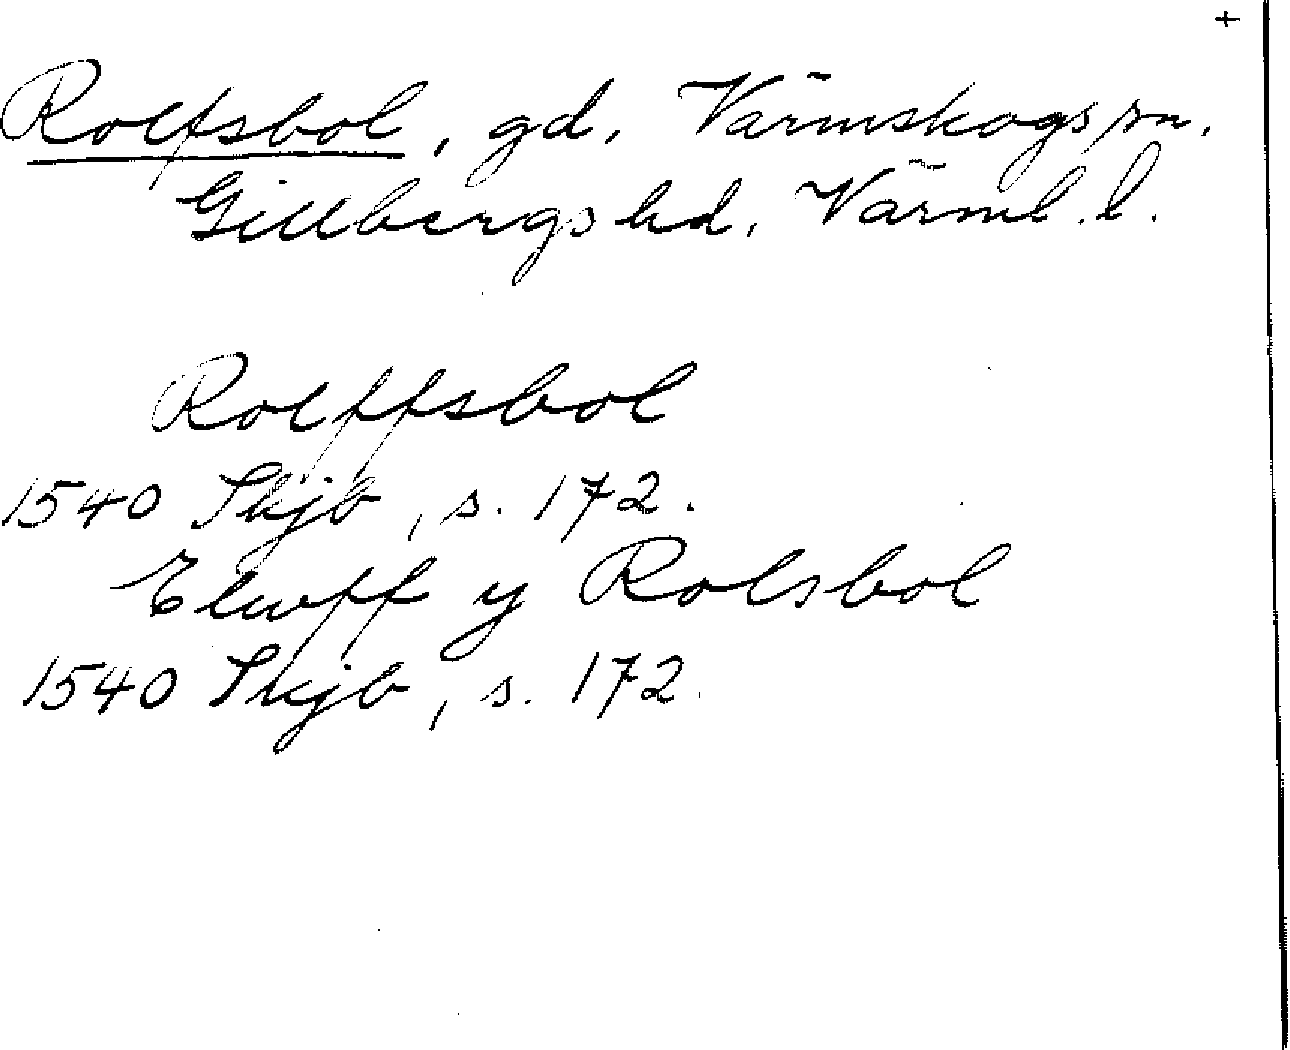 +
Rolfsbol, gd, Värmskogs sn,
Gillbergs hd, Värml. l.
Rolffsbol
1540 Skjb, s. 172.
Elwff y Rolsbol
1540 Skjb, s. 172.